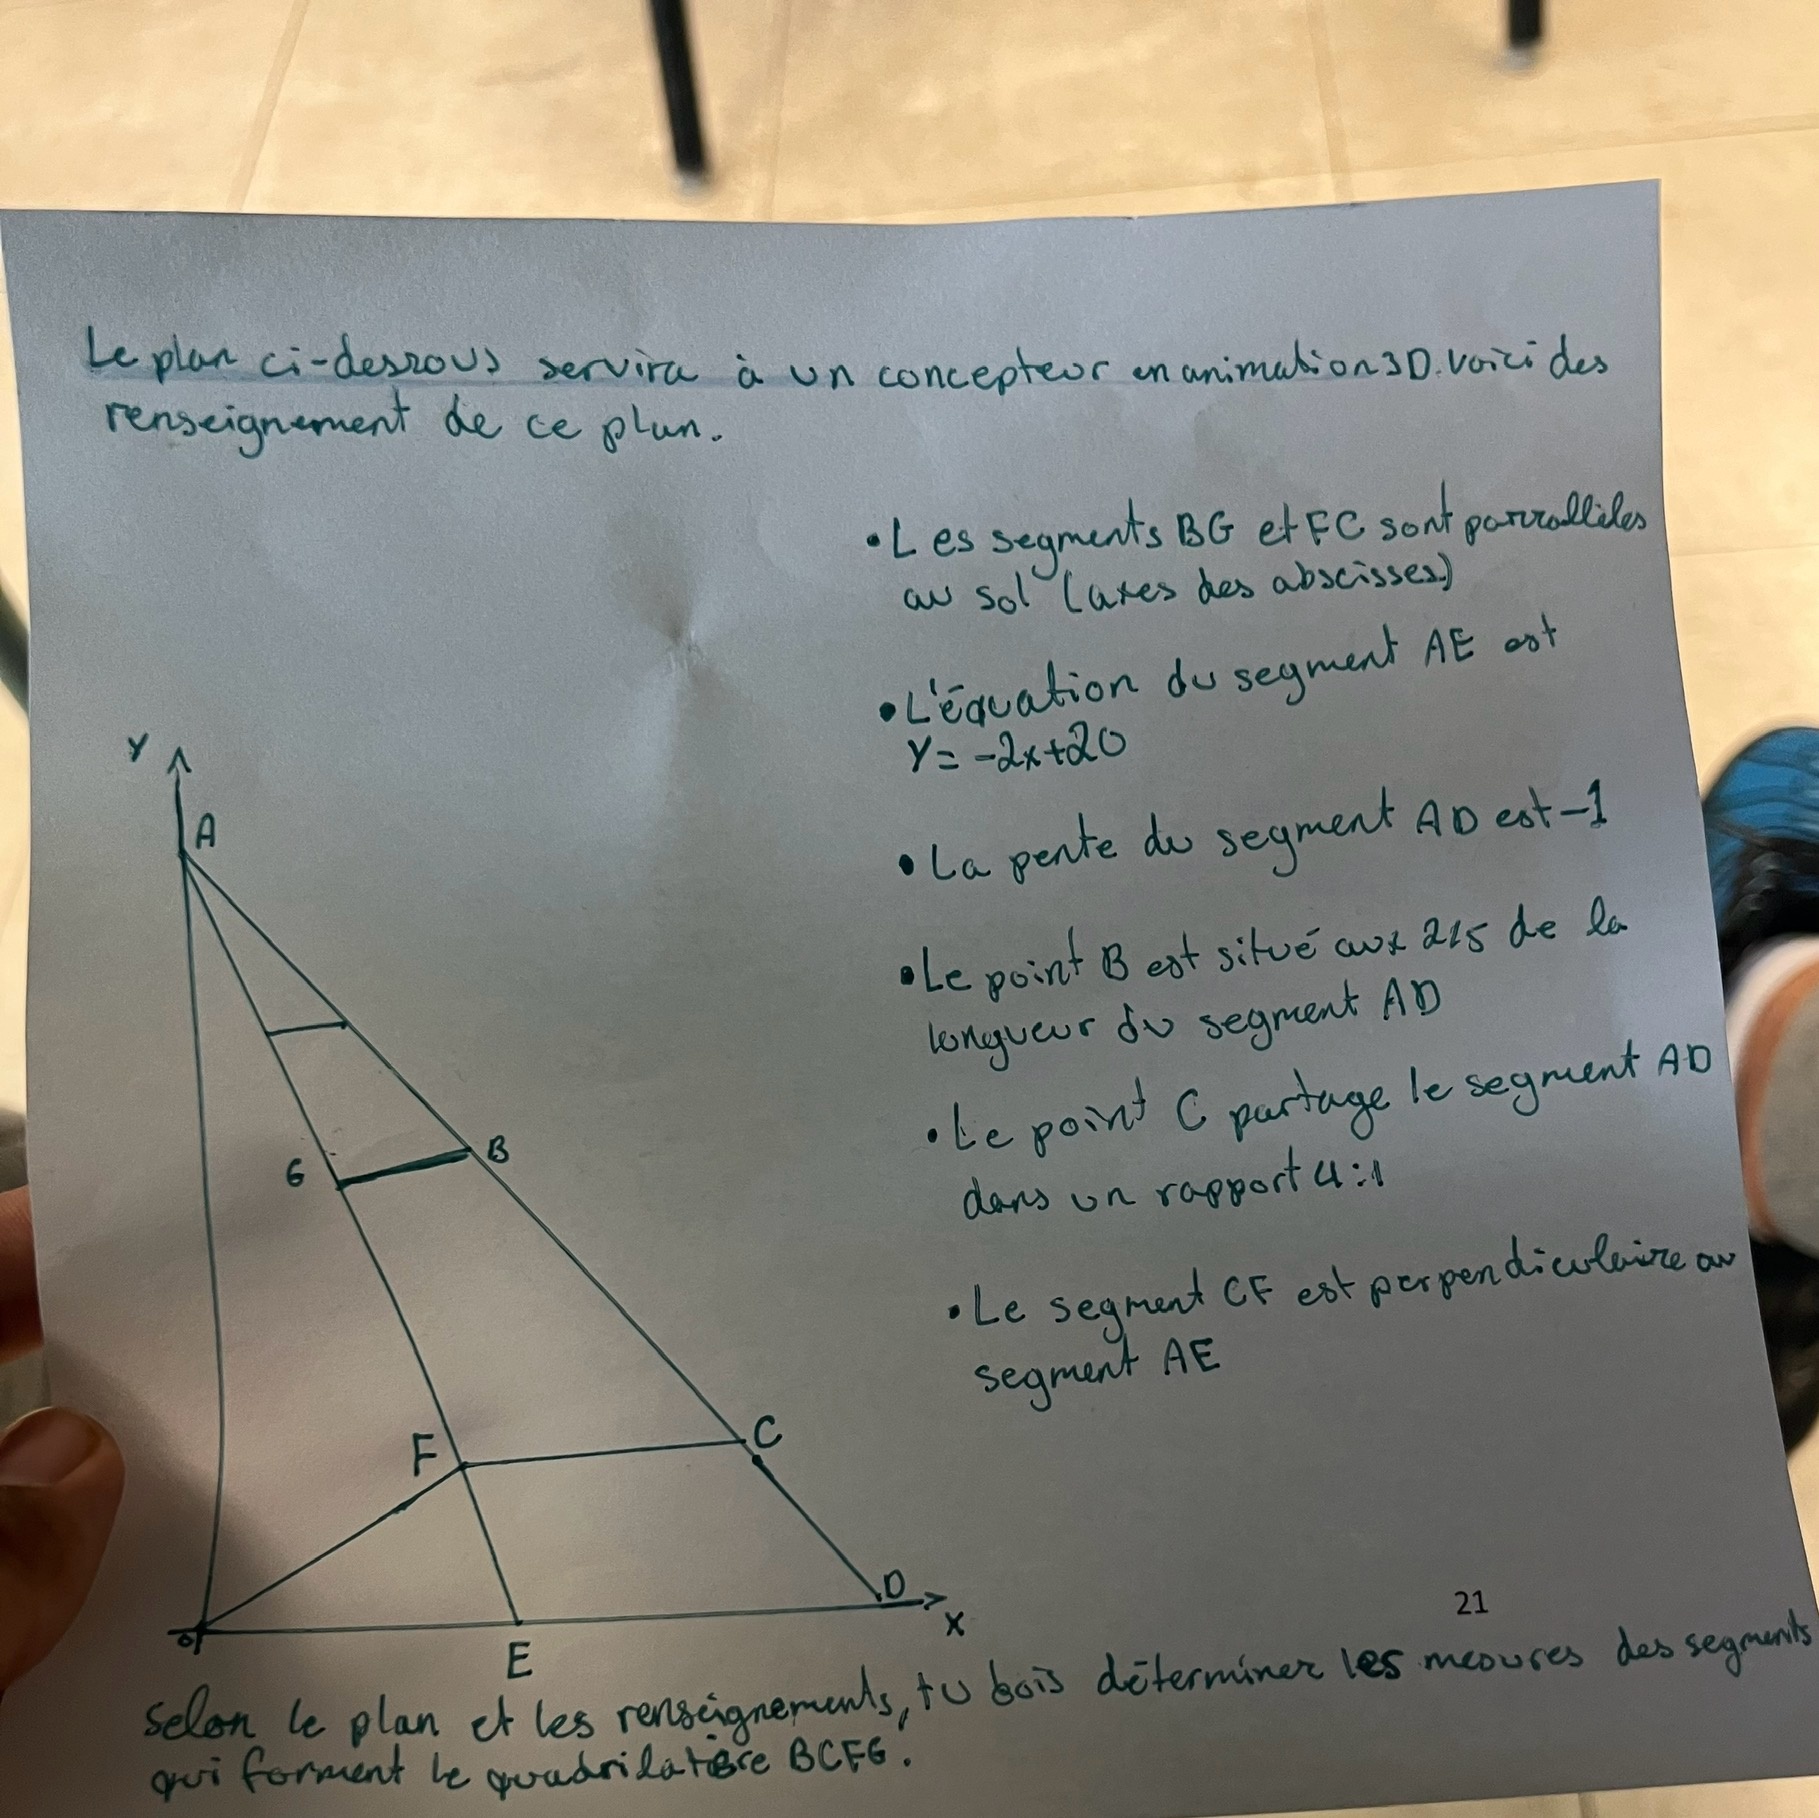 Le plan ci-dessous servira à un concepteur en animation 3D. Voici des
renseignement de ce plan.
• Les segments BG et FC sont parralliles
au sol (axes des abscisses)
• L'équation du segment AE est
Y = -2x+20
• La pente du segment AD est -1
• Le point B est situé aux 2/5 de la
longueur du segment AD
• Le point C partage le segment AD
dans un rapport 4:1
• Le segment CF est perpendiculaire au
segment AE
Y
A
G
B
F
C
D
X
O
E
21
Selon le plan et les renseignements, tu dois déterminer les mesures des segments
qui forment le quadrilatère BCFG.